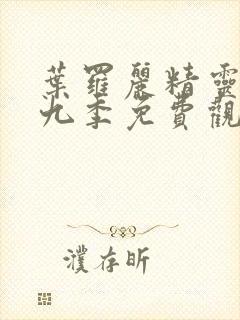 葉羅麗精靈
九季免費觀
濮存昕